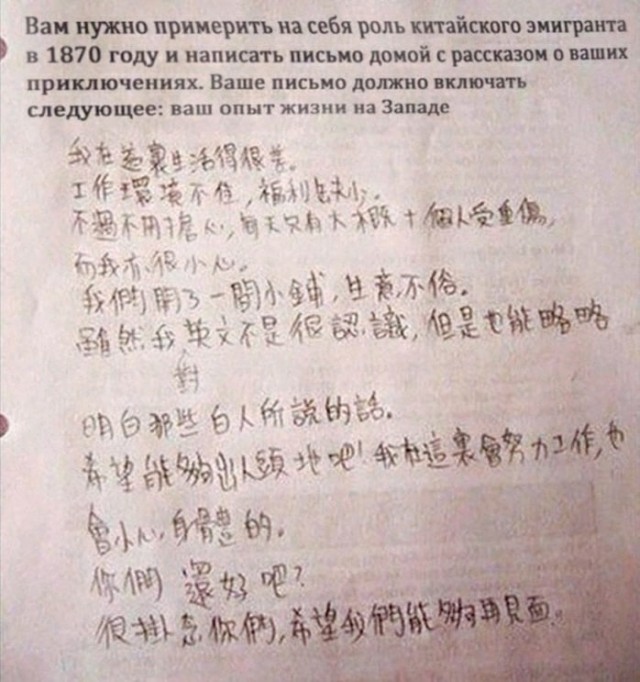 Вам нужно примерить на себя роль китайского эмигранта
в 1870 году и написать письмо домой с рассказом о ваших
приключениях. Ваше письмо должно включать
следующее: ваш опыт жизни на Западе
我在這裏生活得很差。
工作環境不佳，福利缺少。
不過不用擔心，每天只有大概十個人受重傷，
而我亦很小心。
我們開了一間小鋪，生意不俗。
雖然我英文不是很認識，但是也能略略
對
明白那些白人所説的話。
希望能夠出人頭地吧！我在這裏會努力工作，也
會小心身體的。
你們還好吧？
很掛念你們，希望我們能夠再見面。